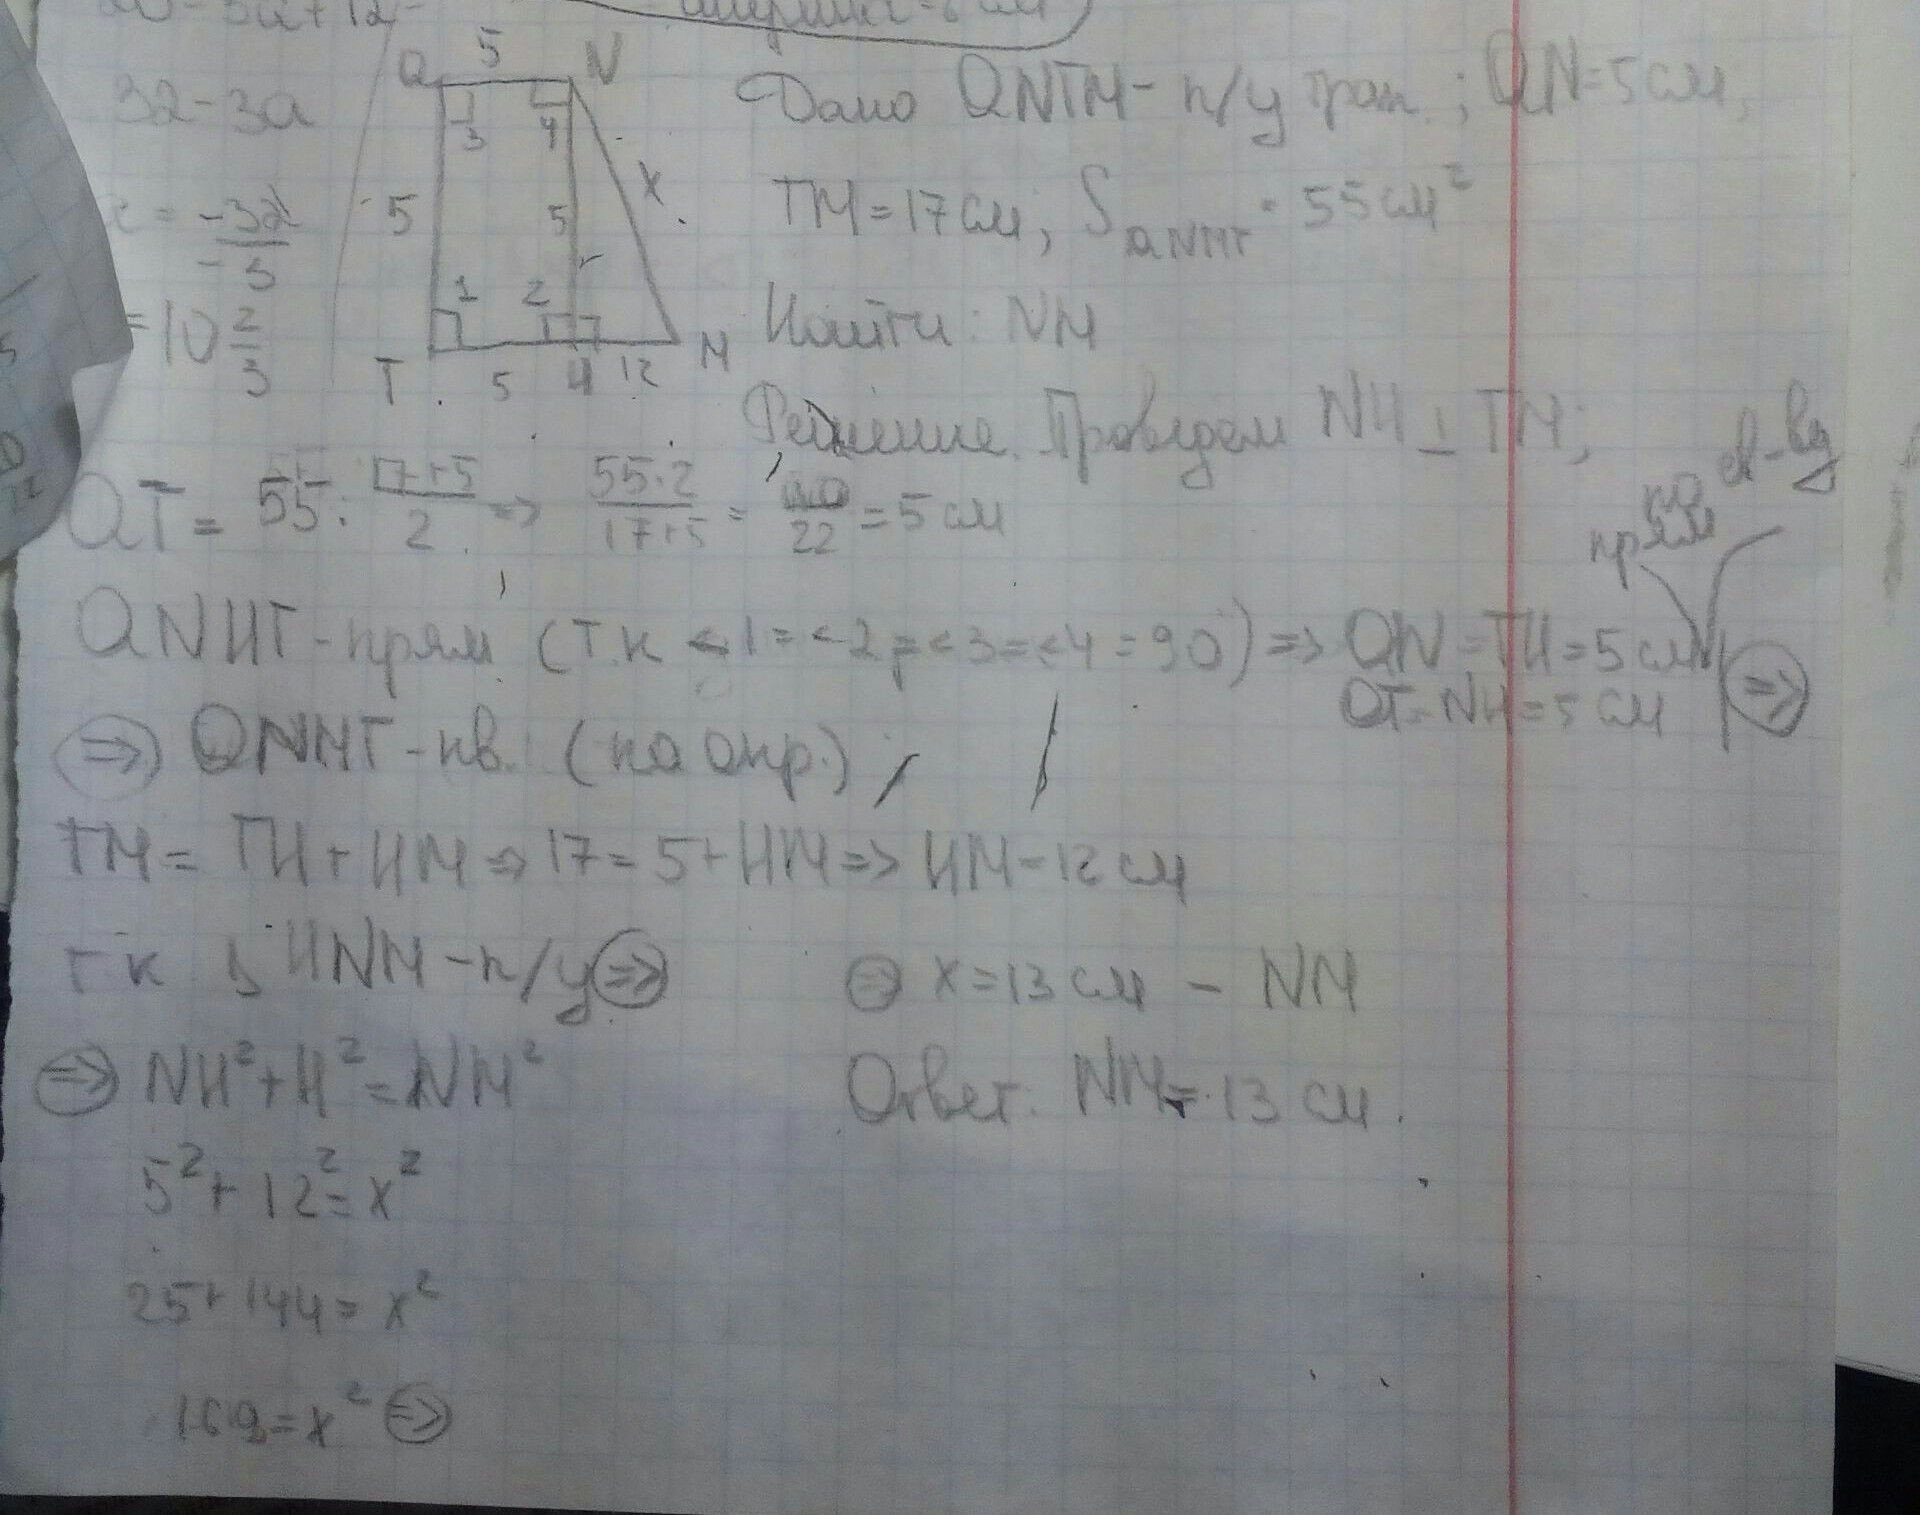 32-3a
= -32
-3
=10 2/3
Q 5 N
3 4
5 5 x
1 2
T 5 H 12 M
Дано QNTM - п/у трап.; QN=5см,
TM=17см, S QNMT = 55см²
Найти: NM
Решение. Проведем NH ⊥ TM;
QT = 55 : 17+5/2 => 55·2/17+5 = 110/22 = 5 см
по св-ву
прям
QNHT - прям (т.к <1=<2=<3=<4=90) => QN=TH=5см
QT=NH=5 см =>
=> QNHT - кв. (по опр.)
TM = TH + HM => 17 = 5+HM => HM=12 см
тк HNM - п/у =>
=> NH²+H²=NM²
5²+12²=x²
25+144=x²
169=x² =>
=> x=13 см - NM
Ответ: NM=13 см.